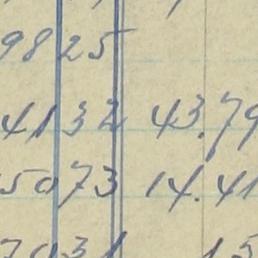 9825
4132 43.79
5073 14.41
7031 15